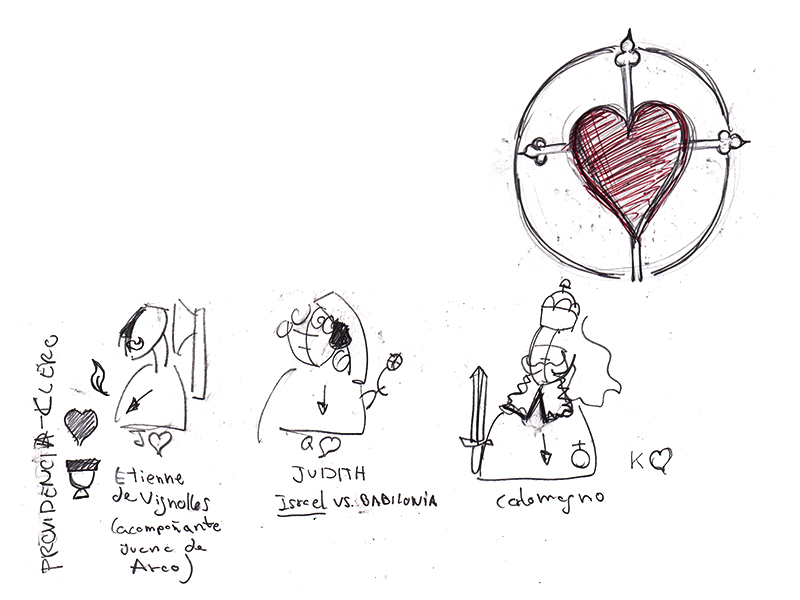 PROVIDENCIA-CLERO
J
Etienne
de Vignolles
(acompañante
Juana de
Arco)
Q
JUDITH
Israel VS. BABILONIA
K
Calomagno